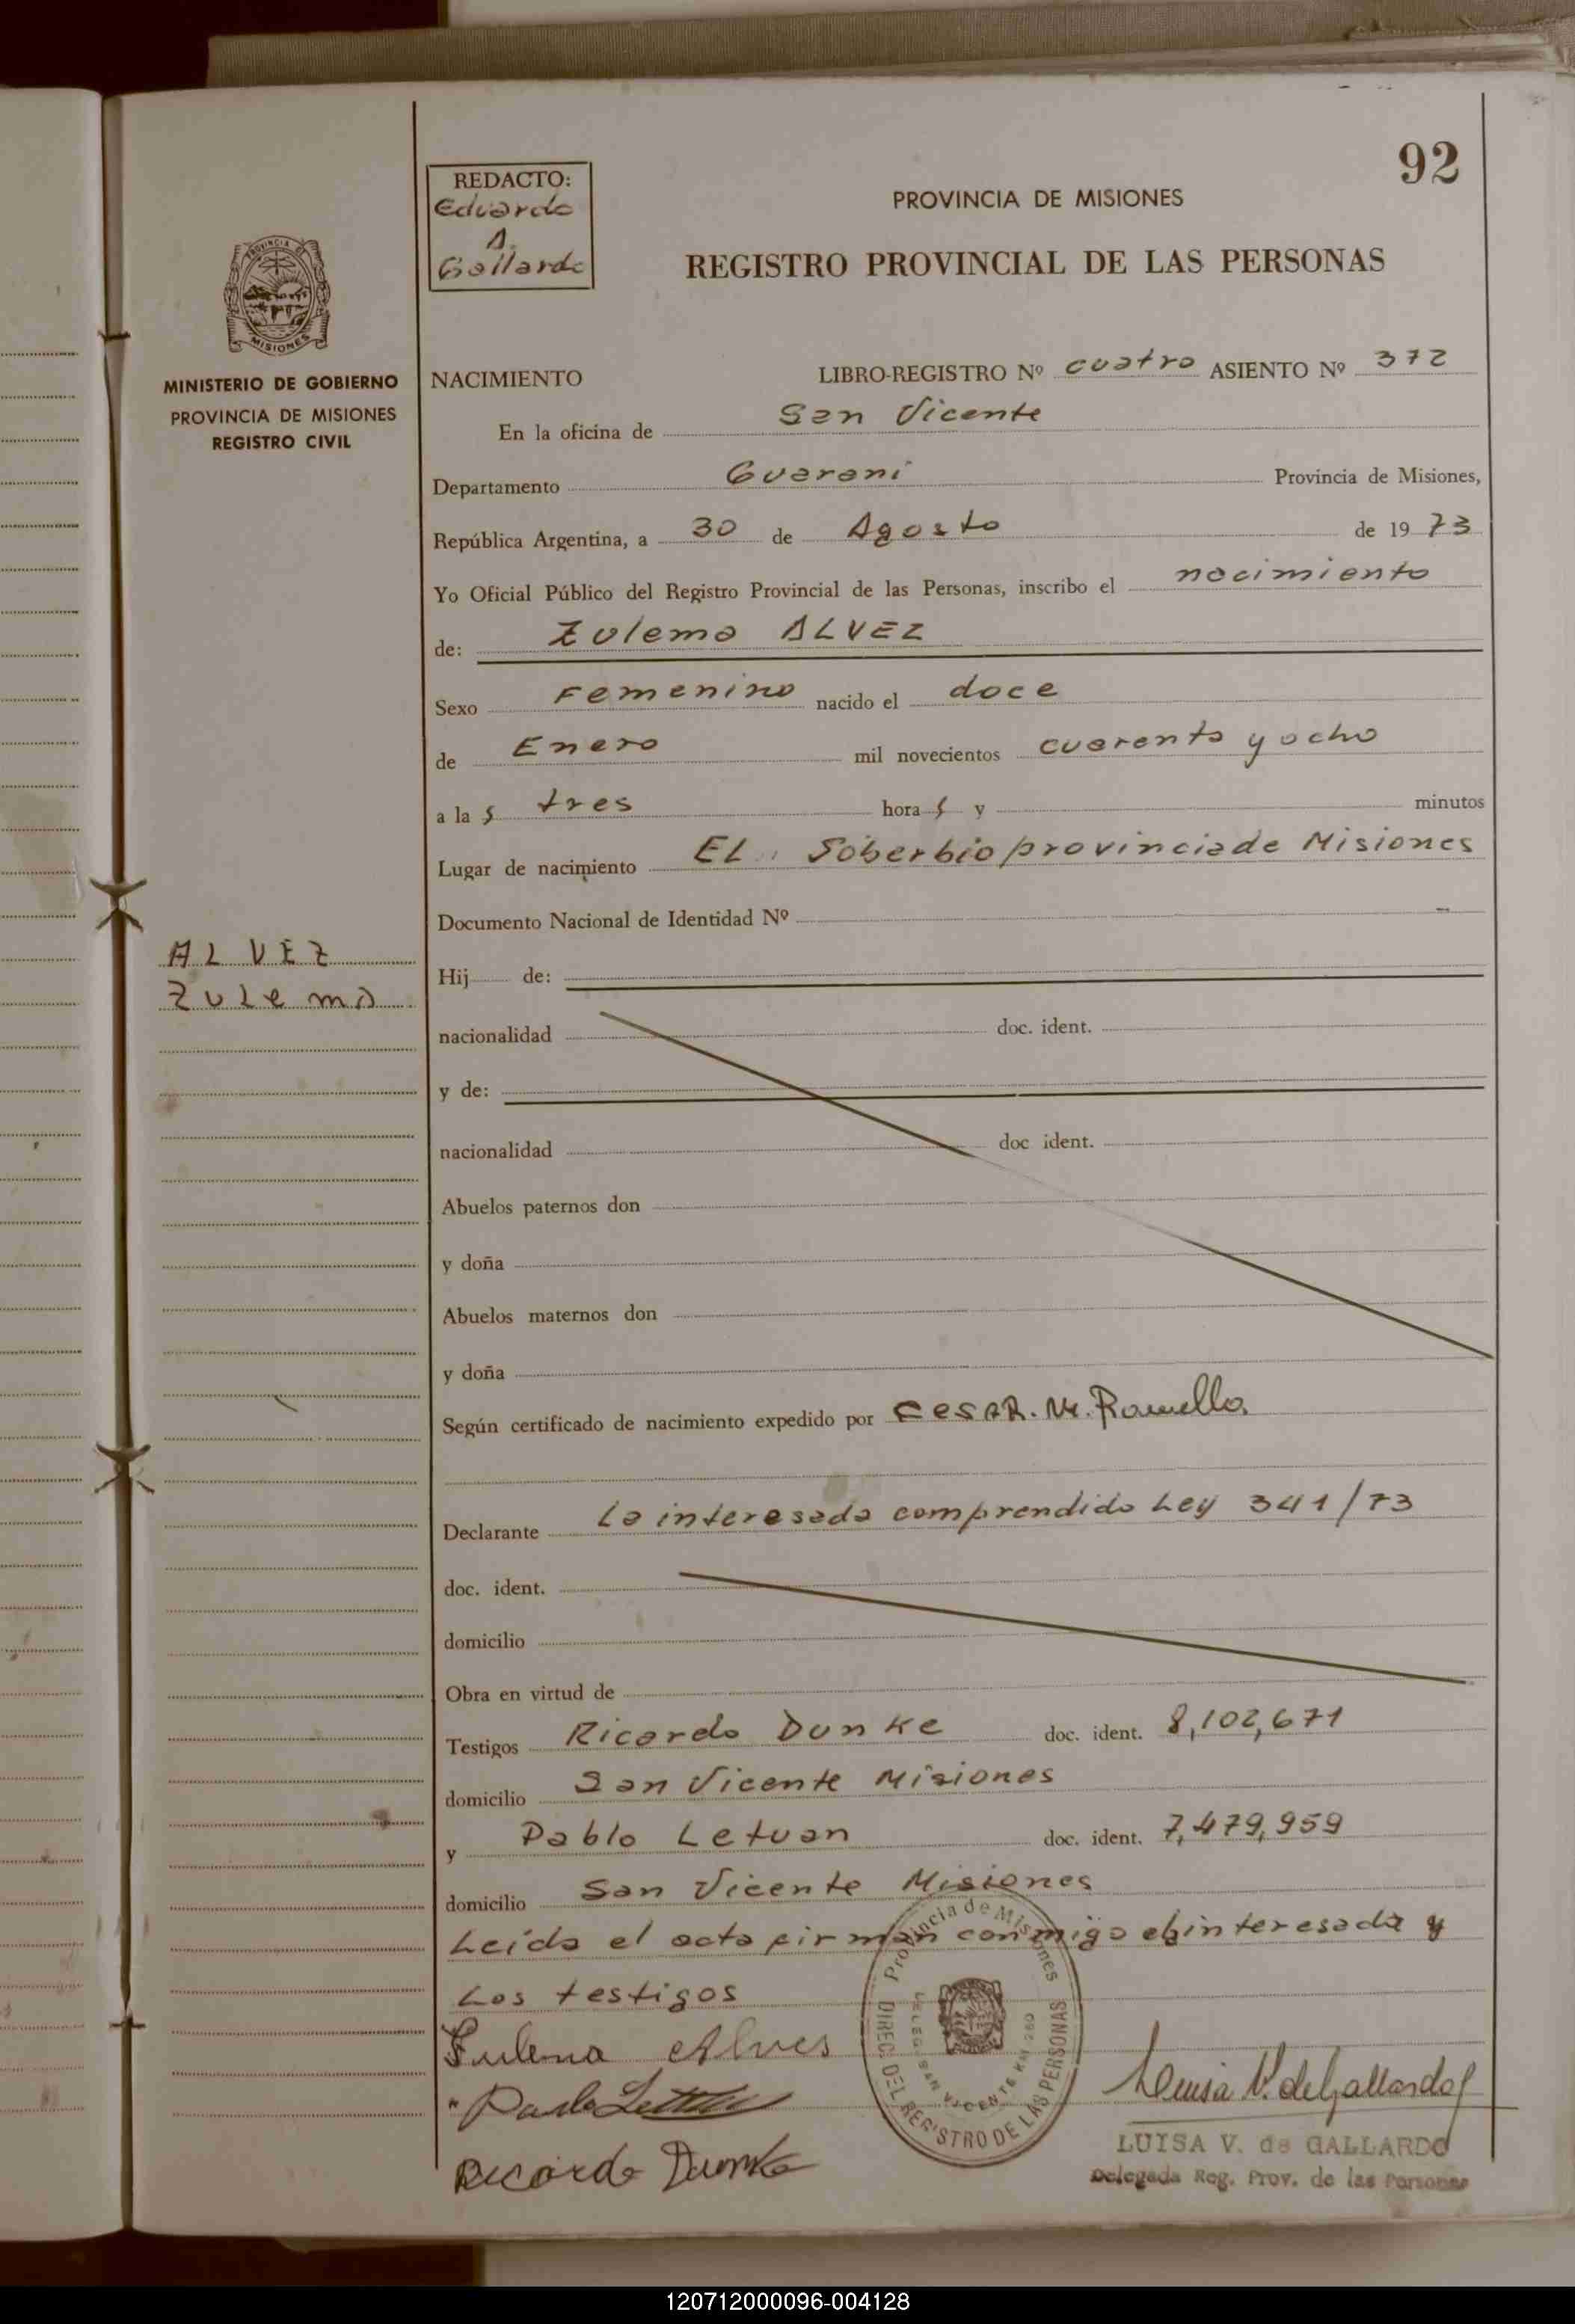 92
REDACTO:
Eduardo
A.
Gallardo
PROVINCIA DE MISIONES
REGISTRO PROVINCIAL DE LAS PERSONAS
MISIONES
MINISTERIO DE GOBIERNO
PROVINCIA DE MISIONES
REGISTRO CIVIL
NACIMIENTO LIBRO-REGISTRO Nº cuatro ASIENTO Nº 372
En la oficina de San Vicente
Departamento Guarani Provincia de Misiones,
República Argentina, a 30 de Agosto de 1973
Yo Oficial Público del Registro Provincial de las Personas, inscribo el nacimiento
de: Zulema ALVEZ
Sexo Femenino nacido el doce
de Enero mil novecientos cuarenta y ocho
a las tres horas y minutos
Lugar de nacimiento EL Soberbio provincia de Misiones
Documento Nacional de Identidad Nº
ALVEZ
Zulema
Hij de:
nacionalidad doc. ident.
y de:
nacionalidad doc ident.
Abuelos paternos don
y doña
Abuelos maternos don
y doña
Según certificado de nacimiento expedido por CesaR. M. Ramella
Declarante La interesada comprendida Ley 341/73
doc. ident.
domicilio
Obra en virtud de
Testigos Ricardo Dunke doc. ident. 8,102,671
domicilio San Vicente Misiones
y Pablo Letuan doc. ident. 7,479,959
domicilio San Vicente Misiones
Leida el acta firman conmigo interesada y
Los testigos
Provincia de Misiones
DIREC. DEL REGISTRO DE LAS PERSONAS
Zulema Alves
Ricardo Dunke
Luisa V. de Gallardo
LUISA V. de GALLARDO
Delegada Reg. Prov. de las Personas
120712000096-004128